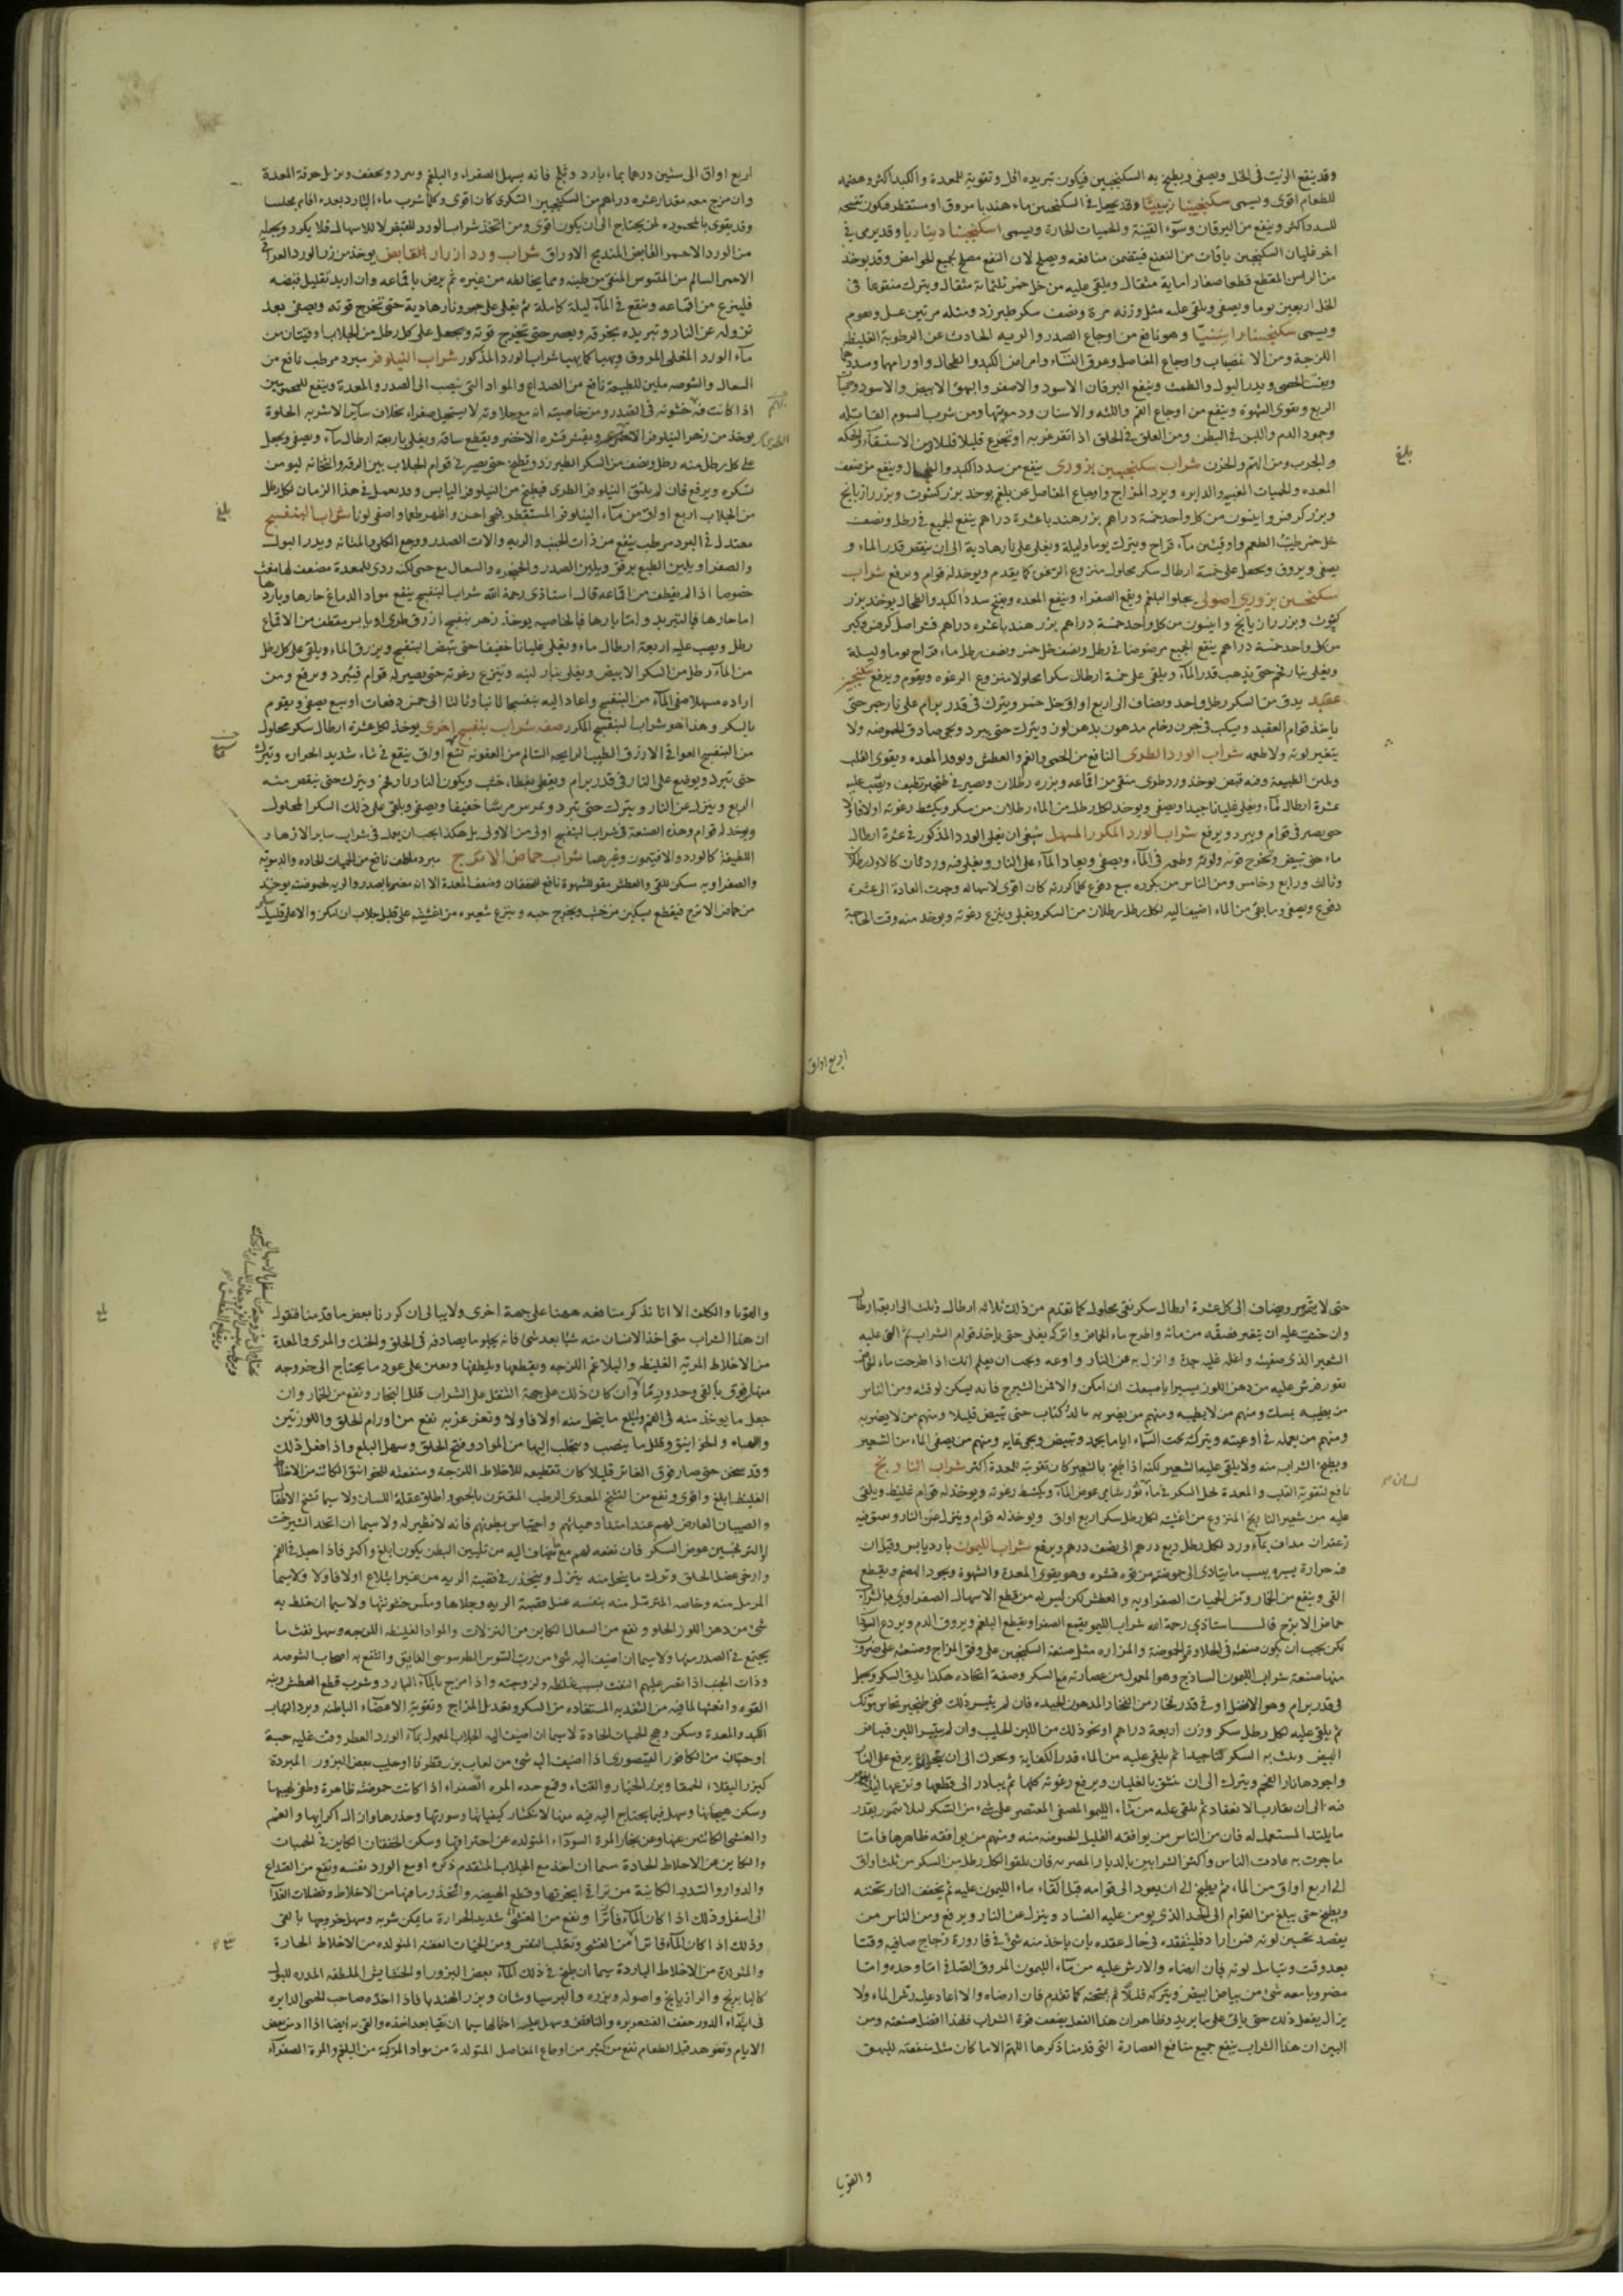 وقد ينقع الزبيب فى الخل ويصفى ويطبخ به السكنجبين فيكون تبريده اقل وتقويته للمعدة والكبد اكثر وهضمه
للطعام اقوى ويسمى سكنجبينا زبيبيا وقد يجعل فى السكنجبين ماء هندبا مروق او مستقطر فيكون تفتيحه
للسدد اكثر وينفع من اليرقان وسوء القنية والحميات الحارة ويسمى سكنجبينا ديناريا وقد يرمى فى
اخر غليان السكنجبين باقات من النعنع فيتضمن منافعه ويصلح لان النعنع مصلح لجميع الحوامض وقد يوخذ
من الراس المقطع قطعا صغارا ماية مثقال ويلقى عليه من خل خمر ثلثمائة مثقال ويترك منقوعا فى
الخل اربعين يوما ويصفى ويلقى عليه مثل وزنه مرة ونصف سكر طبرزد ومثله مرتين عسل ويقوم
ويسمى سكنجبينا وهو نافع من اوجاع الصدر والريه الحادث عن الرطوبة الغليظه
اللزجة ومن الانصباب واوجاع المفاصل وعرق النساء وامراض الكبد والطحال واورامها وسددها
ويفتت الحصى ويدر البول والطمث وينفع اليرقان الاسود والاصفر والبهق الابيض والاسود وحمى
الربع ويقوى الشهوة وينفع من اوجاع الفم واللثه والاسنان ودمويتها ومن شرب السموم القاتله
وجمود الدم واللبن فى البطن ومن العلق فى الحلق اذا تغرغر به او تجرع قليلا قليلا ومن الاستسقاء والحكه
والجرب ومن الهم والحزن شراب سكنجبين بزورى ينفع من سدد الكبد والطحال وينفع من ضعف
المعده والحميات الغبيه والدايره وبرد المزاج واوجاع المفاصل عن بلغم يوخذ بزر كشوث وبزر رازيانج
وبزر كرفس وانيسون من كل واحد خمسة دراهم بزر هندبا عشرة دراهم ينقع الجميع فى رطل ونصف
خل خمر طيب الطعم واوقيتين ماء قراح ويترك يوما وليلة ويغلى على نار هادية الى ان ينقص قدر الماء و
يصفى ويروق ويجعل على خمسة ارطال سكر محلول منزوع الرغوة كما يقدم ويوخذ له قوام ويرفع شراب
سكنجبين بزورى اصولى يجلو البلغم ويقمع الصفراء وينفع المعده ويفتح سدد الكبد والطحال يوخذ بزر
كشوث وبزر رازيانج وانيسون من كل واحد خمسة دراهم بزر هندبا عشره دراهم قشر اصل كرفس وكبر
من كل واحد خمسة دراهم ينقع الجميع مرضوضا فى رطل ونصف خل خمر ونصف رطل ماء قراح يوما وليلة
ويغلى بنار فحم حتى يذهب قدر الماء ويلقى على خمسة ارطال سكرا محلولا منزوع الرغوه ويقوم ويرفع سكنجبين
عقيد يدق من السكر رطل واحد ويضاف الى اربع اواق خل خمر ويترك فى قدر برام على نار جمر حتى
ياخذ قوام العقيد ويسكب فى جرن رخام مدهون بدهن لوز ويترك حتى يبرد ويجى صادق الحموضه ولا
يتغير لونه ولا طعمه شراب الورد الطرى النافع من الحمى والغم والعطش وتوقد المعده ويقوى القلب
ويلين الطبيعة وفيه قبض يوخذ ورد طرى منقى من اقماعه وبزره رطلان ويصير فى طنجير نظيف ويصب عليه
عشرة ارطال ماء ويغلى غليانا جيدا ويصفى ويوخذ لكل رطل من الماء رطلان من سكر ويكشط رغوته اولا فاولا
حتى يصير فى قوام ويبرد ويرفع شراب الورد المكرر المسهل ينبغى ان يغلى الورد المذكور فى عشرة ارطال
ماء حتى يبيض وتخرج قوته ولونه وطعمه فى الماء ويصفى ويعاد الماء على النار ويغلى فيه ورد ثان كالاول رطلا
وثالث ورابع وخامس ومن الناس من يكرره سبع دفوع كلما كررته كان اقوى لاسهاله وجرت العادة الى عشرة
دفوع ويصفى وما بقى من الماء اضيف اليه لكل رطل رطلان من السكر ويغلى وينزع رغوته ويوخذ منه وقت الحاجة
بلغ
اربع اواق
اربع اواق الى ستين درهما بماء بارد وثلج فانه يسهل الصفراء والبلغم ويبرد ويجفف ويزيل حرقة المعدة
وان مزج معه مقدار عشره دراهم من السكنجبين السكرى كان اقوى وكلما شرب ماء البارد بعده اقام مجلسا
وقد يقوى بالمحموده لمن يحتاج الى ان يكون اقوى ومن اتخذ شراب الورد للقبض لا للاسهال فلا يكرر ويجعله
من الورد الاحمر القابض المندمج الاوراق شراب ورد ازرار القابض يوخذ من زر الورد العراقى
الاحمر السالم من المنقى من طينه ومما يخالطه من غيره ثم يرض باقماعه وان اريد تقليل قبضه
فلينزع من اقماعه وينقع فى الماء ليلة كاملة ثم يغلى على جمر ونار هادية حتى تخرج قوته ويصفى بعد
نزوله عن النار وتبريده بخرقه ويعصر حتى تخرج قوته ويجعل على كل رطل من الجلاب اوقيتان من
ماء الورد المغلى المروق ويهيا كما يهيا شراب الورد المذكور شراب النيلوفر مبرد مرطب نافع من
السعال والشوصه ملين للطبيعة نافع من الصداع والمواد التى ينصب الى الصدر والمعدة وينفع للمحمومين
اذا كانت خشونه فى الصدر ومن خاصيته انه مع حلاوته لا يستحيل صفراء بخلاف ساير الاشربه الحلوة
يوخذ من زهر النيلوفر ويقشر قشره الاخضر ويقطع ساقه ويغلى باربعة ارطال ماء ويصفى ويجعل
على كل رطل منه رطل ونصف من السكر الطبرزد ويطبخ حتى يصير فى قوام الجلاب بين الرقه والثخانه ليومن
تسكره ويرفع فان لم يلتق النيلوفر الطرى فيطبخ من النيلوفر اليابس وقد يعمل فى هذا الزمان لكل رطل
من الجلاب اربع اواق من ماء النيلوفر المستقطر فيجى احسن واظهر طعما واصفى لونا شراب البنفسج
معتدل فى البرد مرطب ينفع من ذات الجنب والريه والات الصدر ووجع الكلى والمثانه ويدر البول
والصفرا ويلين الطبع برفق ويلين الصدر والحنجره والسعال مع حمى لكنه ردى للمعدة مضعف لها
خصوصا اذا لم يقطف من اقماعه قال استاذى رحمة الله شراب البنفسج ينفع مواد الدماغ حارها وباردها
اما حارها فبالتبريد واما باردها فبالخاصيه يوخذ زهر بنفسج ازرق طرى او يابس مقطف من الاقماع
رطل ويصب عليه اربعة ارطال ماء ويغلى غليانا خفيفا حتى يبيض البنفسج ويزرق الماء ويلقى على كل رطل
من الماء رطل من السكر الابيض ويغلى بنار لينه وينزع رغوته حتى يصير له قوام فيبرد ويرفع ومن
اراده مسهلا صفى الماء من البنفسج واعاد اليه بنفسجا ثانيا وثالثا الى خمس دفعات او سبع يصفى ويقوم
بالسكر وهذا هو شراب البنفسج المكرر صفه شراب بنفسج اخرى يوخذ لكل عشرة ارطال سكر محلول
من البنفسج العراقى الازرق الطيب الرايحه السالم من العفونه تسع اواق ينقع فى ماء شديد الحراره ويترك
حتى تبرد ويوضع على النار فى قدر برام ويغطى بغطاء خشب ويكون النار نار فحم ويترك حتى ينقص منه
الربع وينزل عن النار ويترك حتى تبرد ويمرس مرسا خفيفا ويصفى ويلقى على ذلك السكر المحلول
ويوخذ له قوام وهذه الصنعة فى شراب البنفسج اولى من الاولى بل هكذا يجب ان يعمل فى شراب ساير الازهار
اللطيفة كالورد والافتيمون وغيرهما شراب حماض الاترج مبرد ملطف نافع من الحميات الحاده والدمويه
والصفراويه مسكن للقى والعطش مقو للشهوة نافع للخفقان وضعف المعدة الا انه مضر بالصدر والريه لحموضته يوخذ
من حماض الاترج فيقطع بسكين من خشب ويخرج حبه وينزع شعيره من اغشيته على قليل جلاب ان امكن والا على قليل
بلغ
حتى لا يتمرر ويضاف الى كل عشرة ارطال سكر نقى محلول كما تقدم من ذلك ثلاثه ارطال وذلك الى اربعة ارطال
وان خشيت عليه ان يتغير فصفه من مائه واطرح ماء الحماض واتركه يغلى حتى ياخذ قوام الشراب ثم القى عليه
الشعير الذى صفيته واغله غليه جيدة وانزل به عن النار واوعه ويجب ان يعلم انك اذا طرحت ماء الحماض
يفور فرش عليه من دهن اللوز يسيرا باصبعك ان امكن والا فمن الشيرج فانه يسكن لوقته ومن الناس
من يطيبه بمسك ومنهم من لا يطيبه ومنهم من يضربه بالدكتاب حتى تبيض قليلا ومنهم من لا يضربه
ومنهم من يعمله فى اوعيته ويتركه تحت السماء اياما يجمد وتبيض ويجى غايه ومنهم من يصفى الماء من الشعير
ويطبخ الشراب منه ولا يلقى عليه الشعير لكنه اذا طبخ بالشعير كان تقويته للمعدة اكثر شراب النارنج
نافع لتقوية القلب والمعدة لحل السكر فى ماء شامى عوض الماء ويكشط رغوته ويوخذ له قوام غليظ ويلقى
عليه من شعير النارنج المنزوع من اغشيته لكل رطل سكر اربع اواق ويوخذ له قوام وينزل عن النار ويعتق فيه
زعفران مداف بماء ورد لكل رطل ربع درهم الى نصف درهم ويرفع شراب الليمون بارد يابس وقيل ان
فيه حرارة يسيره بسبب ما يتادى الى حموضته من قوه قشره وهو يقوى المعدة والشهوة ويجود الهضم ويقطع
القى وينفع من الخمار ومن الحميات الصفراويه والعطش لكن ليس له من قطع الاسهال الصفراوى ما لشراب
حماض الاترج قال استاذى رحمة الله شراب الليمو يقمع الصفرا ويقطع البلغم ويروق الدم ويردع السودا
لكن يجب ان يكون صنعته فى الحلاوة والحموضة والمزاره مثل صنعة السكنجبين على وفق المزاج وصنعته على ضروب
منها صنعة شراب الليمون الساذج وهو المعمول من عصارته مع السكر وصفة اتخاذه هكذا يدق السكر ويجعل
فى قدر برام وهو الافضل او فى قدر فخار من الفخار المدهون الجيده فان لم يتيسر ذلك ففى طنجير نحاس
ثم يلقى عليه لكل رطل سكر وزن اربعة دراهم او نحو ذلك من اللبن الحليب وان لم يتيسر اللبن فبياض
البيض ويلت به السكر لتا جيدا ثم يلقى عليه من الماء قدر الكفاية ويحرك الى ان ثم يرفع على النار
واجودها نار الفحم ويترك الى ان ينشق بالغليان ويرفع رغوته كلها ثم يبادر الى قطعها ونزعها ليلا
فيه الى ان يقارب الانعقاد ثم يلقى عليه من ماء الليمو المصفى المعتصر على شى من السكر ليلا يتمرر بقدر
ما يلتذ المستعمل له فان من الناس من يوافقه القليل الحموضه منه ومنهم من يوافقه ظاهرها فاما
ما جرت به عادت الناس واكثر الشرابين بالديار المصريه فان يلقوا لكل رطل من السكر من ثلث اواق
الى اربع اواق من الماء ثم يطبخ الى ان يعود الى قوامه قبل القاء ماء الليمون عليه ثم يخفف النار تحته
ويطبخ حتى يبلغ من القوام الى الحد الذى يومن عليه الفساد وينزل عن النار ويرفع ومن الناس من
يقصد تحسين لونه فمن اراد فليتفقده فى حال عقده بان ياخذ منه شى فى قارورة زجاج صافيه وقتا
بعد وقت ويتامل لونه فان ارضاه والا رش عليه من ماء الليمون المروق الصافى اما وحده واما
مضروبا معه شى من بياض البيض ويتركه قليلا ثم يمتحنه كما تقدم فان ارضاه والا اعاد عليه رش الماء ولا
يزال يفعل ذلك حتى ياتى على ما يريد وظاهر ان هذا الفعل يضعف قوة الشراب فلهذا افضل صنعته ومن
البين ان هذا الشراب ينفع جميع منافع العصارة التى قدمنا ذكرها اللهم الا ما كان مثل منفعته للبهق
لسان
والقوبا
والقوبا والكلف الا انا نذكر منافعه ههنا على جهة اخرى ولا يبالى ان كررنا بعض ما قدمنا فنقول
ان هذا الشراب متى اخذ الانسان منه شيا بعد شى فانه يجلو ما يصادفه فى الحلق والحنك والمرى والمعدة
من الاخلاط المريه الغليظه والبلاغم اللزجه ويقطعها ويلطفها ويعين على عود ما يحتاج الى خروجه
منها بالقى وحدوره وان كان ذلك على جهة التنقل على الشراب قلل البخار ونفع من الخمار وان
جعل ما يوخذ منه فى الفم وبلع ما ينحل منه اولا فاولا وتغرغر به نفع من اورام الحلق واللوزتين
واللهاه والخوانيق وقلل ما ينصب ويتحلب اليها من المواد وفتح الحلق وسهل البلع واذا فعل ذلك
وقد سخن حتى صار فوق الفاتر قليلا كان تقطيعه للاخلاط اللزجة ومنفعته للخوانيق الكائنه من الاخلاط
الغليظه ابلغ واقوى ونفع من التشنج المعدى الرطب المقترن بالحمى واطلق عقلة اللسان ولا سيما تشنج الاطفال
والصبيان العارض لهم عند امتداد حمياتهم واحتباس بطونهم فانه لا نظير له ولا سيما ان اتخذ الشيرخشت
او الترنجبين عوض السكر فان نفعه لهم مع ما يضاف اليه من تليين البطن يكون ابلغ واكثر فاذا جعل فى الفم
وارخى عضل الحلق وترك ما ينحل منه ينزل وينحدر فى قصبة الريه من غير ابتلاع اولا فاولا ولا سيما
المرمل منه وخاصه المترسل منه بنفسه غسل قصبة الريه وجلاها وملس خشونتها ولا سيما ان خلط به
شى من دهن اللوز الحلو ونفع من السعال الكاين من النزلات والمواد الغليظه اللزجه وسهل نفث ما
يجتمع فى الصدر منها ولا سيما ان اضيف اليه شى من رب السوس الطرسوسى الفايق وانتفع به اصحاب الشوصه
وذات الجنب اذا تعسر عليهم النفث بسبب غلظه ولزوجته واذا مزج بالماء البارد وشرب قطع العطش ونبه
القوه وانعشها لما فيه من التغذيه المستفاده من السكر وتعديل المزاج وتقوية الاعضاء الباطنه وبرد التهاب
الكبد والمعدة وسكن وهج الحميات الحادة لا سيما ان اضيف اليه الجلاب المعمول بماء الورد العطر وفت عليه حبة
او حبتان من الكافور القيصورى اذا اضيف اليه شى من لعاب بزر قطونا او حليب بعض البزور المبردة
كبزر البقلاء الحمقا وبزر الخيار والقثاء وقمع حده المره الصفراء اذا كانت حموضته ظاهرة وطفى لهيبها
وسكن هيجانها وسهل فيما يحتاج اليه فيه منها لانكسار كيفياتها وسورتها وحدرها وازال اكرابها والغم
والغشى الكائنين عنها وعن بخار المرة السوداء المتولده عن احتراقها وسكن الخفقان الكاين فى الحميات
والكاين عن الاخلاط الحادة سيما ان اخذ مع الجلاب المتقدم ذكره او مع الورد نفسه ونفع من الصداع
والدوار والشديد الكائنة من تراقى ابخرتها وقطع الهيضه وانحدر ما فيها من الاخلاط وفضلات الغذا
الى اسفل وذلك اذا كان الماء فاترا ونفع من الغشى شديد الحرارة ما يمكن شربه وسهل خروجها بالقى
وذلك اذا كان الماء فاترا من الغشى وتقلب النفس ومن الحميات العفنه المتولده من الاخلاط الحارة
والمتولدة من الاخلاط الباردة سيما ان طبخ فى ذلك الماء بعض البزور والحشايش الملطفه المدره للبول
كالبابونج والرازيانج واصوله وبزره والبرسياوشان وبزر الهندبا فاذا اخذه صاحب الحمى الدايره
فى ابتداء الدور خفف القشعريره والنافض وسهل عليه احتمالها سيما ان تقيا بعد اخذه والقى به ايضا اذا ادمن بعض
الايام وتعوهد قبل الطعام نفع من كثير من اوجاع المفاصل المتولدة من مواد المركبة من البلغم والمرة الصفراء